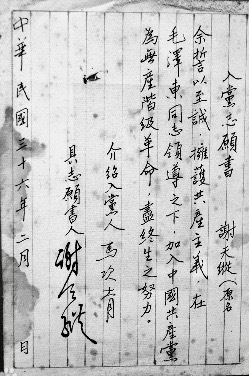 入黨志願書 謝天縱(原名
余誓以至誠，擁護共產主義，在
毛澤東同志領導之下，加入中國共產黨
為無產階級革命，盡終生之努力。
介紹入黨人
具志願書人 謝天縱
中華民國三十六年二月 日